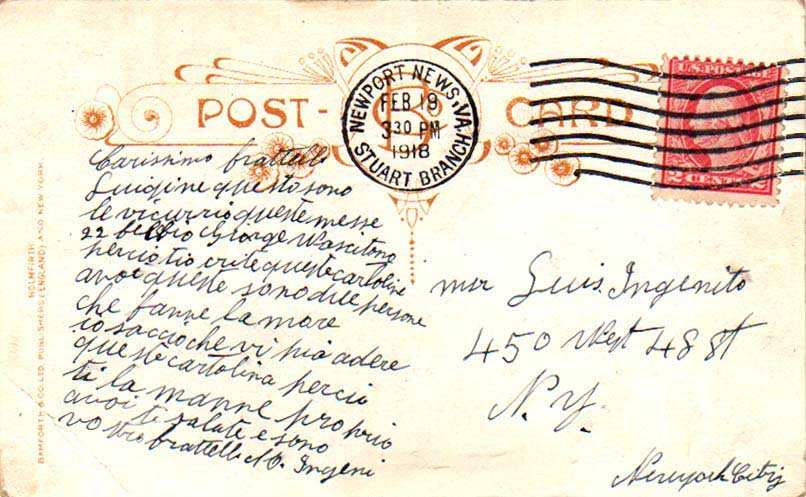 POST-CARD
NEWPORT NEWS, VA.
FEB 19
3 30 PM
1918
STUART BRANCH
U.S. POSTAGE
2 CENTS 2
HOLMFIRTH
BAMFORTH & CO. LTD. PUBLISHERS (ENGLAND) AND NEW YORK.
Carissimo frattello
Luigine questo sono
queste messe
22
percio tio crite queste cartoline
avoi queste sono due persone
che fanne la more
io saccio che vi pia adere
queste cartolina percio
ti la manne proprio
avoi te salute e sono
vostro frattello Ingeni
mr Luis. Ingenito
450 West 48 st
N. Y.
Newyork City